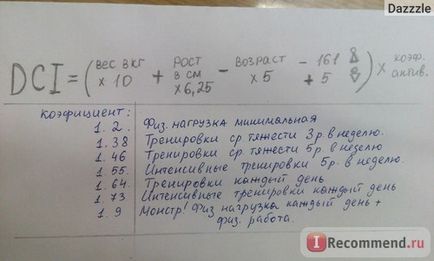 Dazzzle
DCI = ( вес в кг × 10 + рост в см × 6,25 - возраст × 5 - 161 + 5 ) × коэф. актив.
коэфициент:
1.2. Физ. нагрузка минимальная
1.38 Тренировки ср. тяжести 3р в неделю.
1.46 Тренировки ср. тяжести 5р. в неделю.
1.55. Интенсивные тренировки 5р. в неделю.
1.64. Тренировки каждый день
1.73 Интенсивные тренировки каждый день
1.9 Монстр! Физ нагрузка каждый день +
физ. работа.
iRecommend.ru